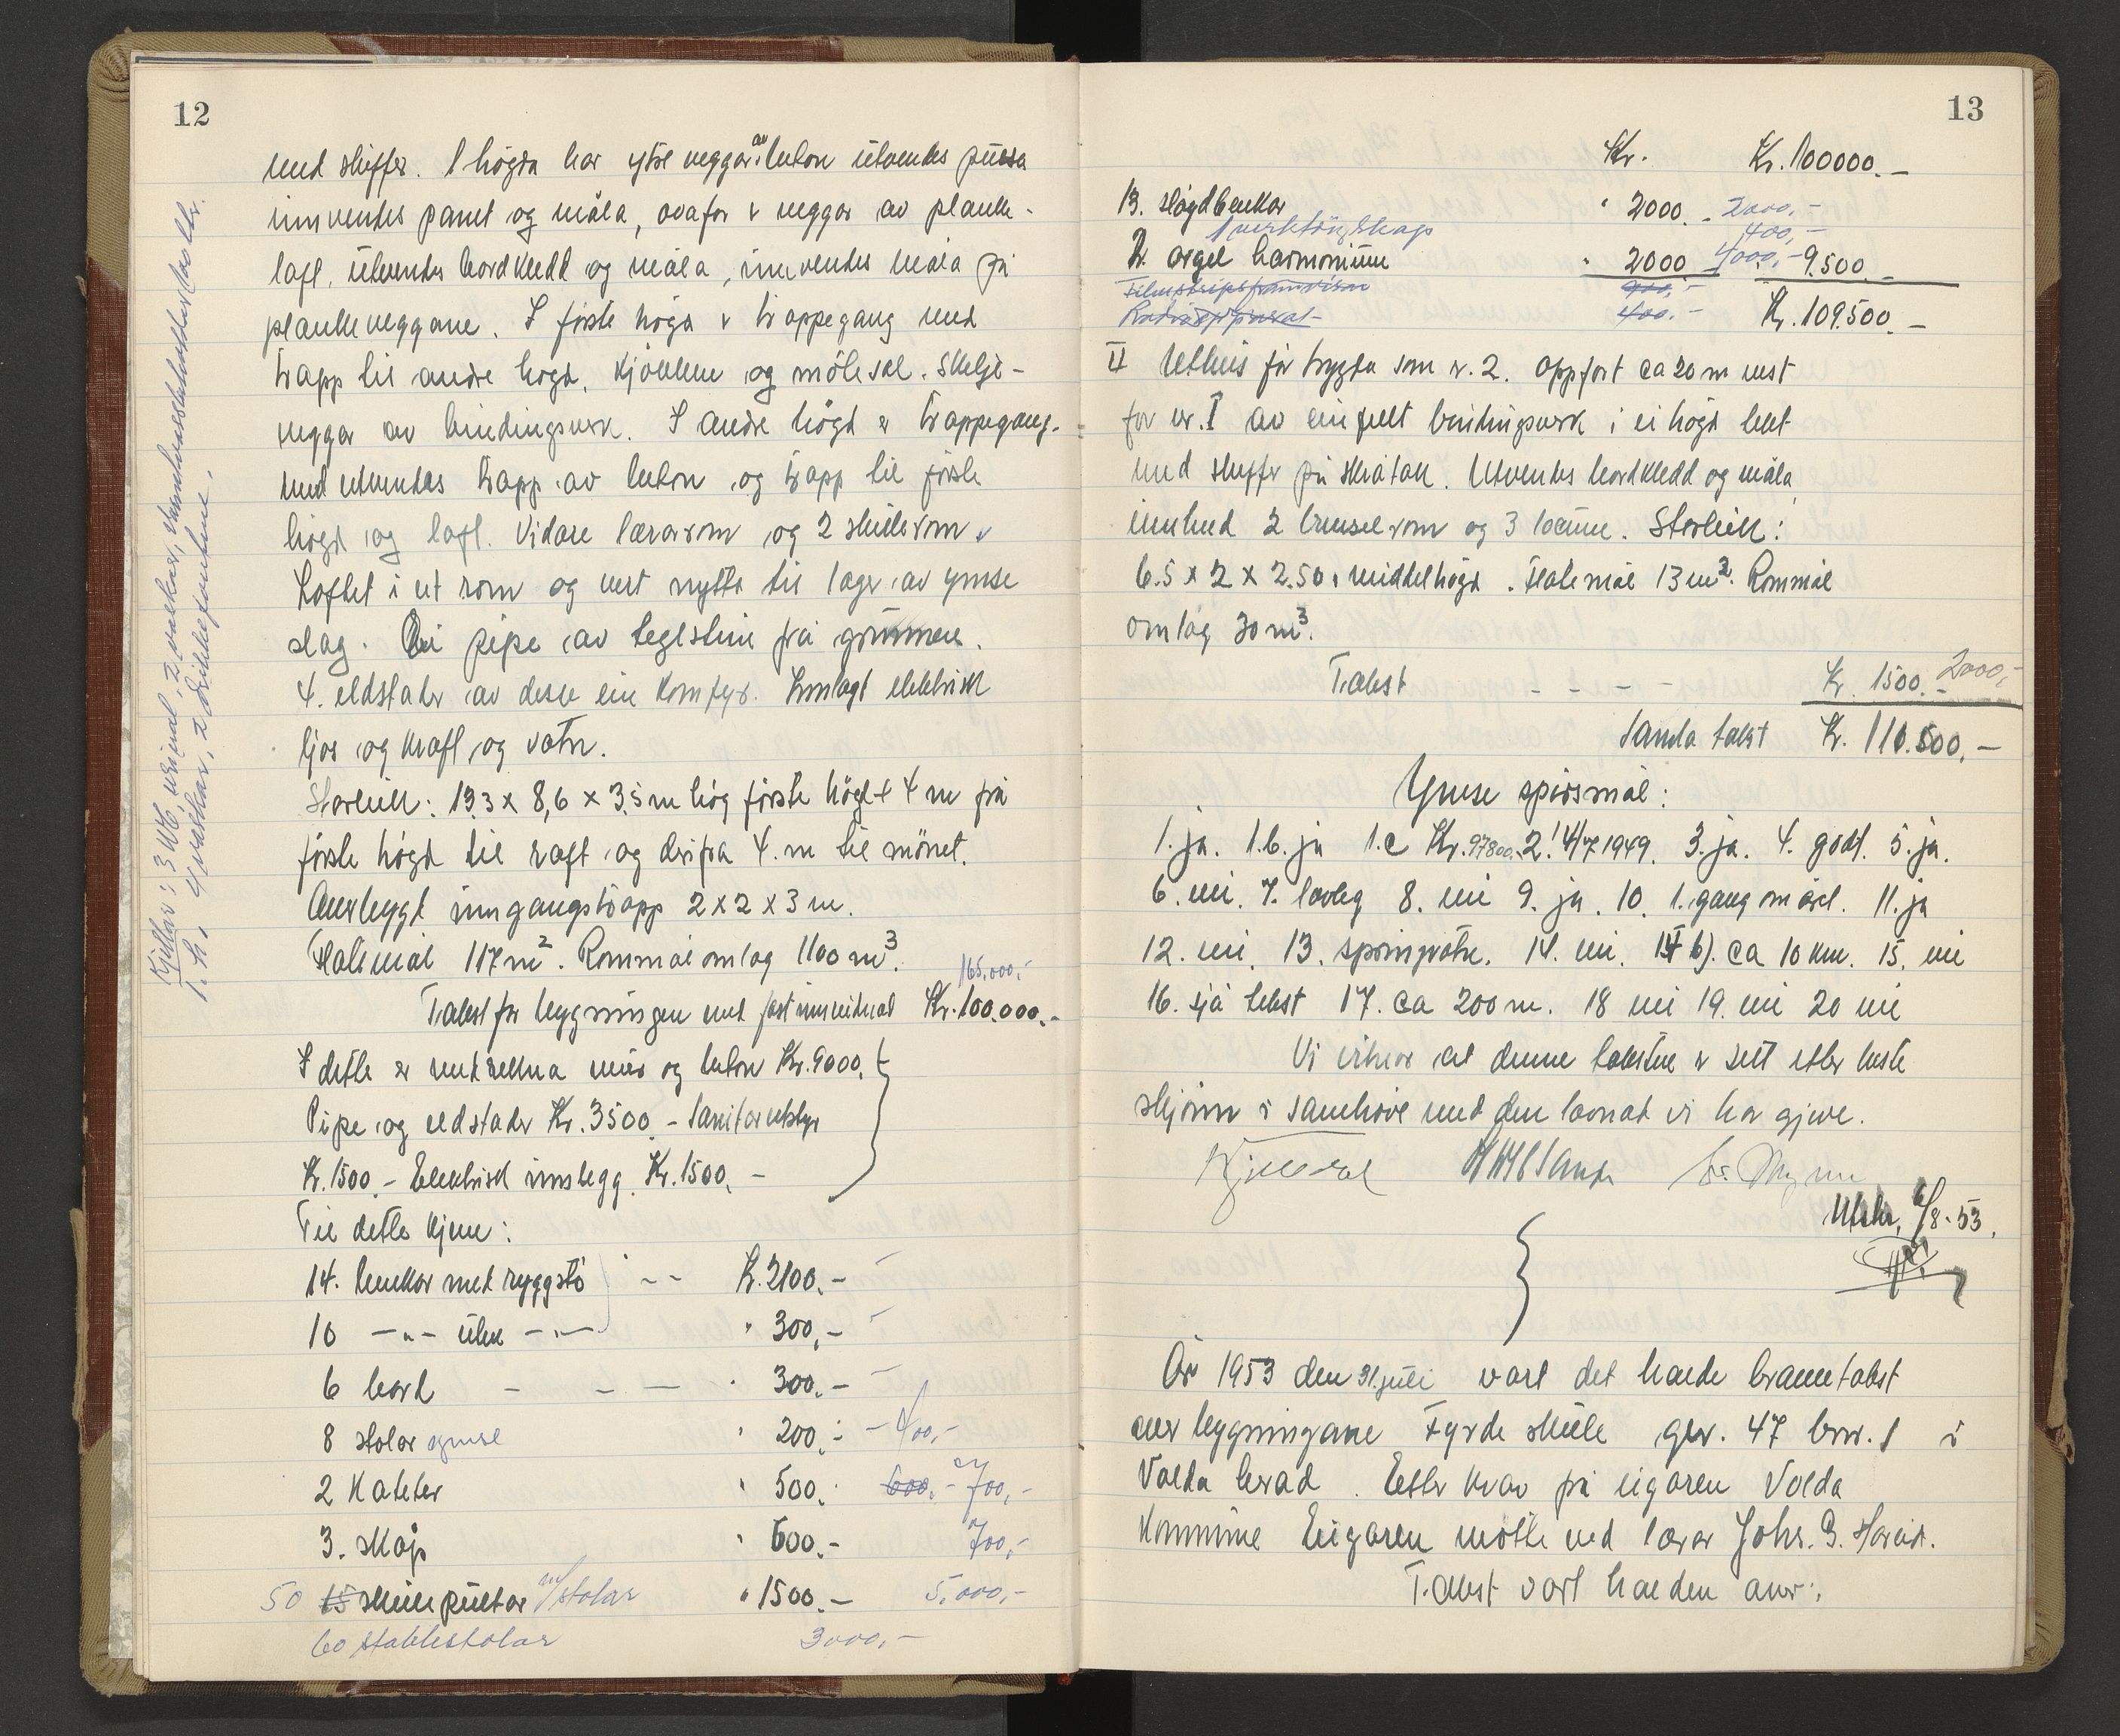 12
med skiffer. I högda har ytre veggar av beton utvendes pussa
innvendes panel og måla, ovafor er veggar av planke-
laft, utvendes bordkledd og måla, innvendes måla på
plankeveggane. I förste högd er trappegang med
trapp til andre högd, kjökken og mötesal. Skilje-
veggar av bindingsverk. I andre högd er trappegang.
med utvendes trapp av beton og trapp til förste
högd og loft. Vidare lærarrom og 2 skulerom.
Loftet i eit rom og vert nytta til lager av ymse
slag. Ei pipe av teglstein frå grunnen.
4. eldstader av desse ein komfyr. Innlagt elektrisk
ljos og kraft og vatn.
Storleik: 13,3 x 8,6 x 3,5 m hög förste högd + 4 m frå
förste högd til raft og derifra 4. m til mönet.
Överbygd inngangstrapp 2 x 2 x 3 m.
Flatemål 117 m². Rommål omlag 1100 m³.
165.000,-
Takst for bygningen med fast innreidnad Kr. 100.000.-
I dette er medrekna mur og beton Kr. 9000,
Pipe og eldstader Kr. 3500.- Sanitærutstyr
Kr. 1500.- Elektrisk innlegg. Kr. 1500,-
Til dette kjem:
14. benkar med ryggstö - - Kr. 2100.-
10 -"- utan -"- " 300,-
6 bord - - - " 300.-
8 stolar ymse " 200,- - 400,-
2 Kateter " 500, 600,- 700,-
3. skåp " 600.- 700,-
50 15 skulepultar m/stolar " 1500.- 5.000,-
60 stablestolar 3000,-
Kjellar: 3 WC, urinal, 2 vaskar,
1. h. 4 vaskar, 2 drikkefontene.
13
Kr. Kr. 100000.-
13. slöydbenkar " 2000.- 2000,-
1 verktöyskap 400,-
2. orgel harmonium " 2000 4000,- 9.500.-
Filmstripsframvisar 900,-
Radioapparat 400.- Kr. 109.500.-
II Uthus för brygda som nr. 2. oppfört ca 20 m vest
for nr. I av einfelt bindingsverk i ei högd tekt
med skiffer på skråtak. Utvendes bordkledd og måla
innhed 2 brenselrom og 3 locum. Storleik:
6.5 x 2 x 2.50 middelhögd. Flatemål 13 m². Rommål
omlag 30 m³.
Takst - - - - Kr. 1500.- 2000,-
Samla takst Kr. 110.500,-
Ymse spörsmål:
1. ja. 1.b. ja 1.c Kr. 97800. 2. 4/7 1949. 3. ja. 4. godt. 5. ja.
6. nei. 7. lovleg 8. nei 9. ja. 10. 1. gang om året. 11. ja
12. nei. 13. springvatn. 14. nei. 14 b). ca 10 km. 15. nei
16. sjå tekst 17. ca 200 m. 18 nei 19. nei 20 nei
Vi vitnar at denne taksten er sett etter beste
skjönn i samhöve med den lovnad vi har gjeve.
Utskr. 6/8-53.
År 1953 den 31. juli vart det halde branntakst
over bygningane Fyrde skule gnr. 47 bnr. 1 i
Volda herad. Etter krav på eigaren Volda
Kommune Eigaren mötte ved lærar Johs. B. Hareid.
Takst vart halden over: